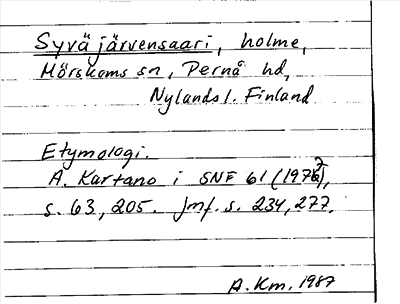 Syväjärvensaari, holme,
Mörskoms sn, Pernå hd,
Nylands l. Finland
Etymologi.
A. Kartano i SNF 61 (1977),
s. 63, 205. Jmf. s. 234, 277.
A. Km. 1987